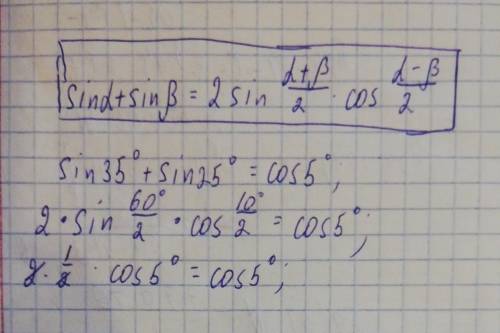 sinα+sinβ = 2 sin (α+β)/2 · cos (α-β)/2
sin35°+sin25° = cos5°;
2·sin 60°/2 · cos 10°/2 = cos5°;
2·1/2 · cos5° = cos5°;